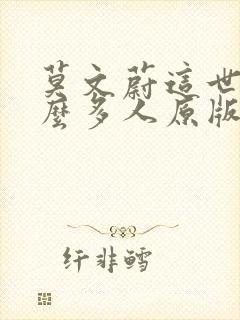 莫文蔚這世
麼多人原版
纤非鳕